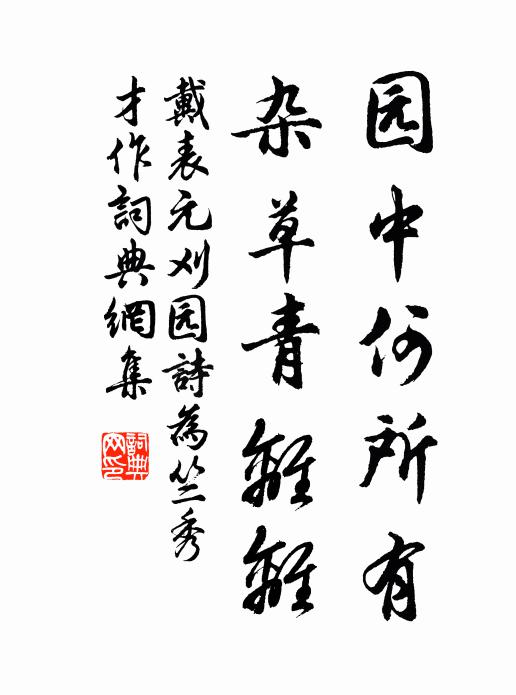 园中何所有
杂草青離離
戴表元刈园詩為竺秀
才作詞典網集
詞典网印